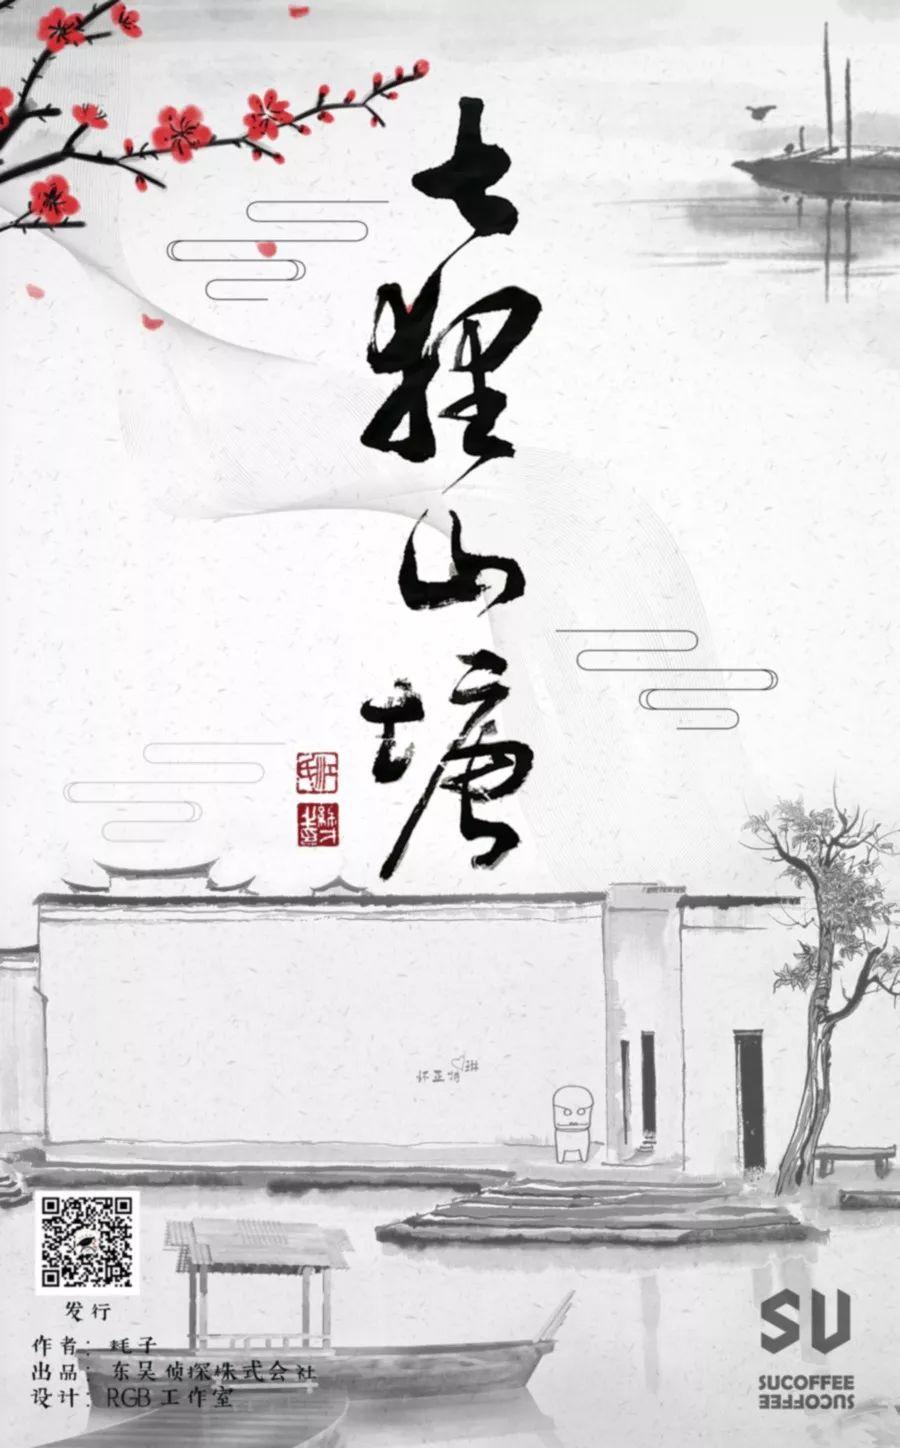 七狸山塘
怀亚特♡琳
发行
作者：耗子
出品：东吴侦探株式会社
设计：RGB工作室
SU
SUCOFFEE
SUCOFFEE